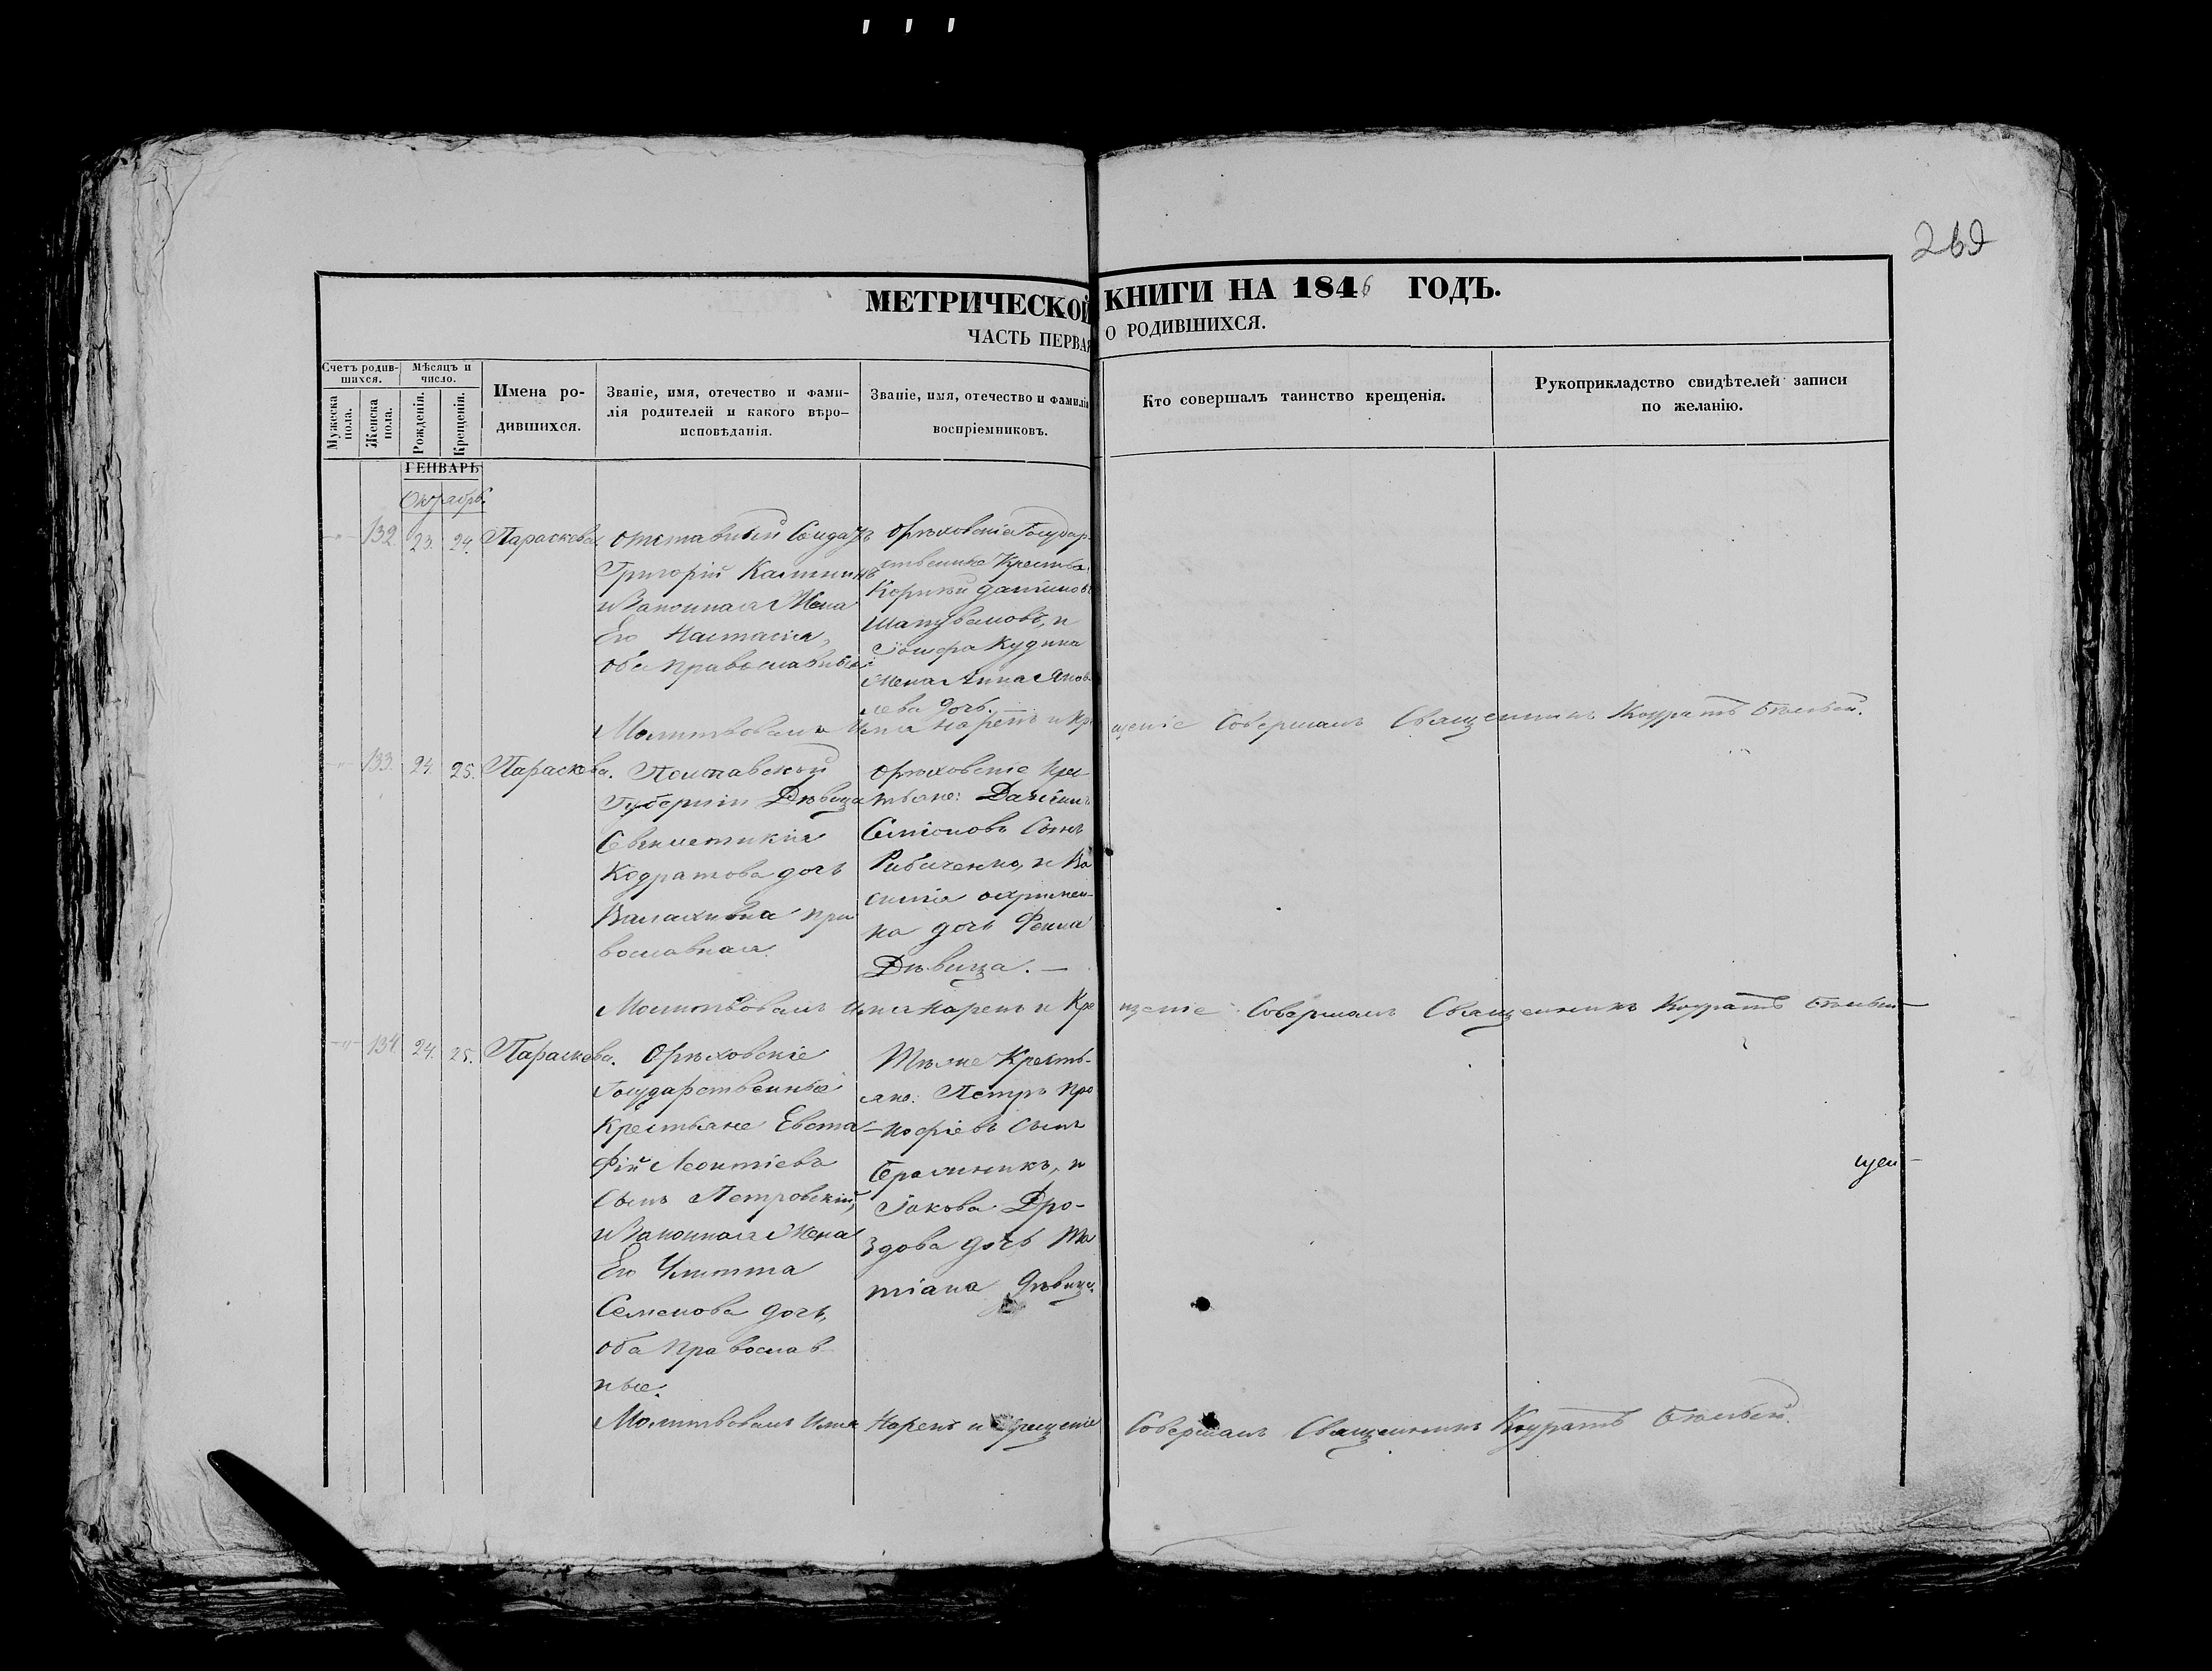 269
МЕТРИЧЕСКОЙ КНИГИ НА 1846 ГОДЪ.
ЧАСТЬ ПЕРВАЯ О РОДИВШИХСЯ.
Счетъ родив-
шихся.
Мѣсяцъ и
число.
Мужеска
пола.
Женска
пола.
Рожденія.
Крещенія.
Имена ро-
дившихся.
Званіе, имя, отечество и фами-
лія родителей и какого вѣро-
исповѣданія.
Званіе, имя, отечество и фамилія
воспріемниковъ.
Кто совершалъ таинство крещенія.
Рукоприкладство свидѣтелей записи
по желанію.
ГЕНВАРЬ
Октябрь.
132. 23. 24. Параскева
отставный Солдатъ
Григорій Калинин
и Законная Жена
Его Настасія,
оба православные
Орѣховскіе Государ-
ственные Крестья:
Корнѣй
и
Іосифа Кудина
Жена Анна Яков
лева дочь.
Молитвовалъ Имя нарекъ и Кре
щеніе Совершалъ Священникъ Кодратъ Бѣлый.
133. 24. 25. Параскева.
Полтавской
Губерніи Дѣвица
Кодратова дочь
пра
вославная.
Орѣховскіе Кре
тьяне: Даніилъ
Семіоновъ Сынъ
Рибаченко, и Ва
силія охримен-
ка дочь Фекла
Дѣвица. —
Молитвовалъ имя нарекъ и Кре
щеніе Совершалъ Священникъ Кодратъ Бѣлый
134 24. 25. Параскева.
Орѣховскіе
Государственные
Крестьяне Евста
фій Леонтіевъ
Сынъ Петровскій,
и Законная Жена
Его Улитта
Семенова дочь,
оба Православ
ные.
Тѣже Кресть-
яне: Петръ Про
кофіевъ Сынъ
и
Іакова Дро-
здова дочь Та
тіана Дѣвица.
щен
Молитвовалъ имя Нарекъ и Крещеніе
Совершалъ Священникъ Кодратъ Бѣлый.